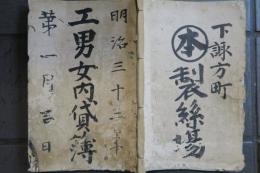 下諏方町
本
製絲場
明治三十二年
工男女内貸簿
第一月吉日